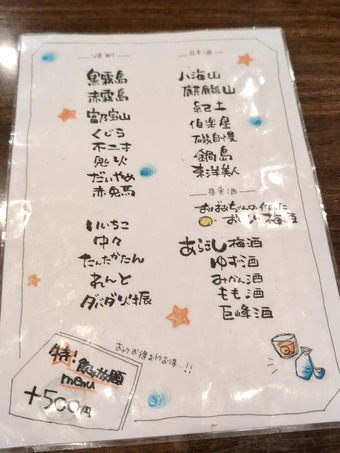 黒霧島
赤霧島
富乃宝山
くじら
不二才
鬼火
だいやめ
赤兎馬
いいちこ
中々
たんたかたん
れんと
ダバダ火振
日本酒
八海山
麒麟山
紀土
伯楽星
磯自慢
鍋島
東洋美人
果実酒
おばあちゃんの作った
おいしい梅酒
あらごし梅酒
ゆず酒
みかん酒
もも酒
巨峰酒
特!飲み放題
menu
+500円